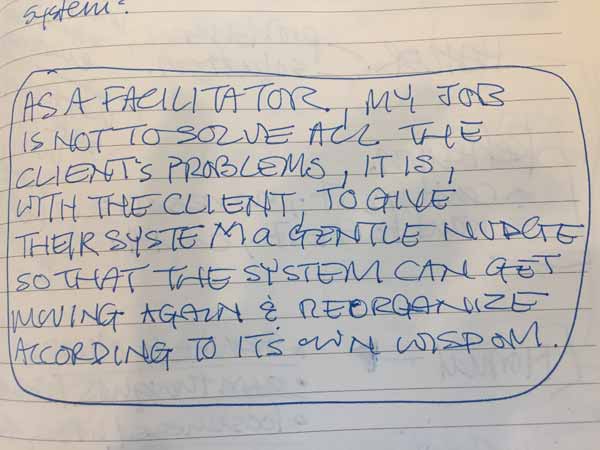 system.
AS A FACILITATOR, MY JOB
IS NOT TO SOLVE ALL THE
CLIENT'S PROBLEMS, IT IS,
WITH THE CLIENT, TO GIVE
THEIR SYSTEM a GENTLE NUDGE
SO THAT THE SYSTEM CAN GET
MOVING AGAIN & REORGANIZE
ACCORDING TO ITS OWN WISDOM.